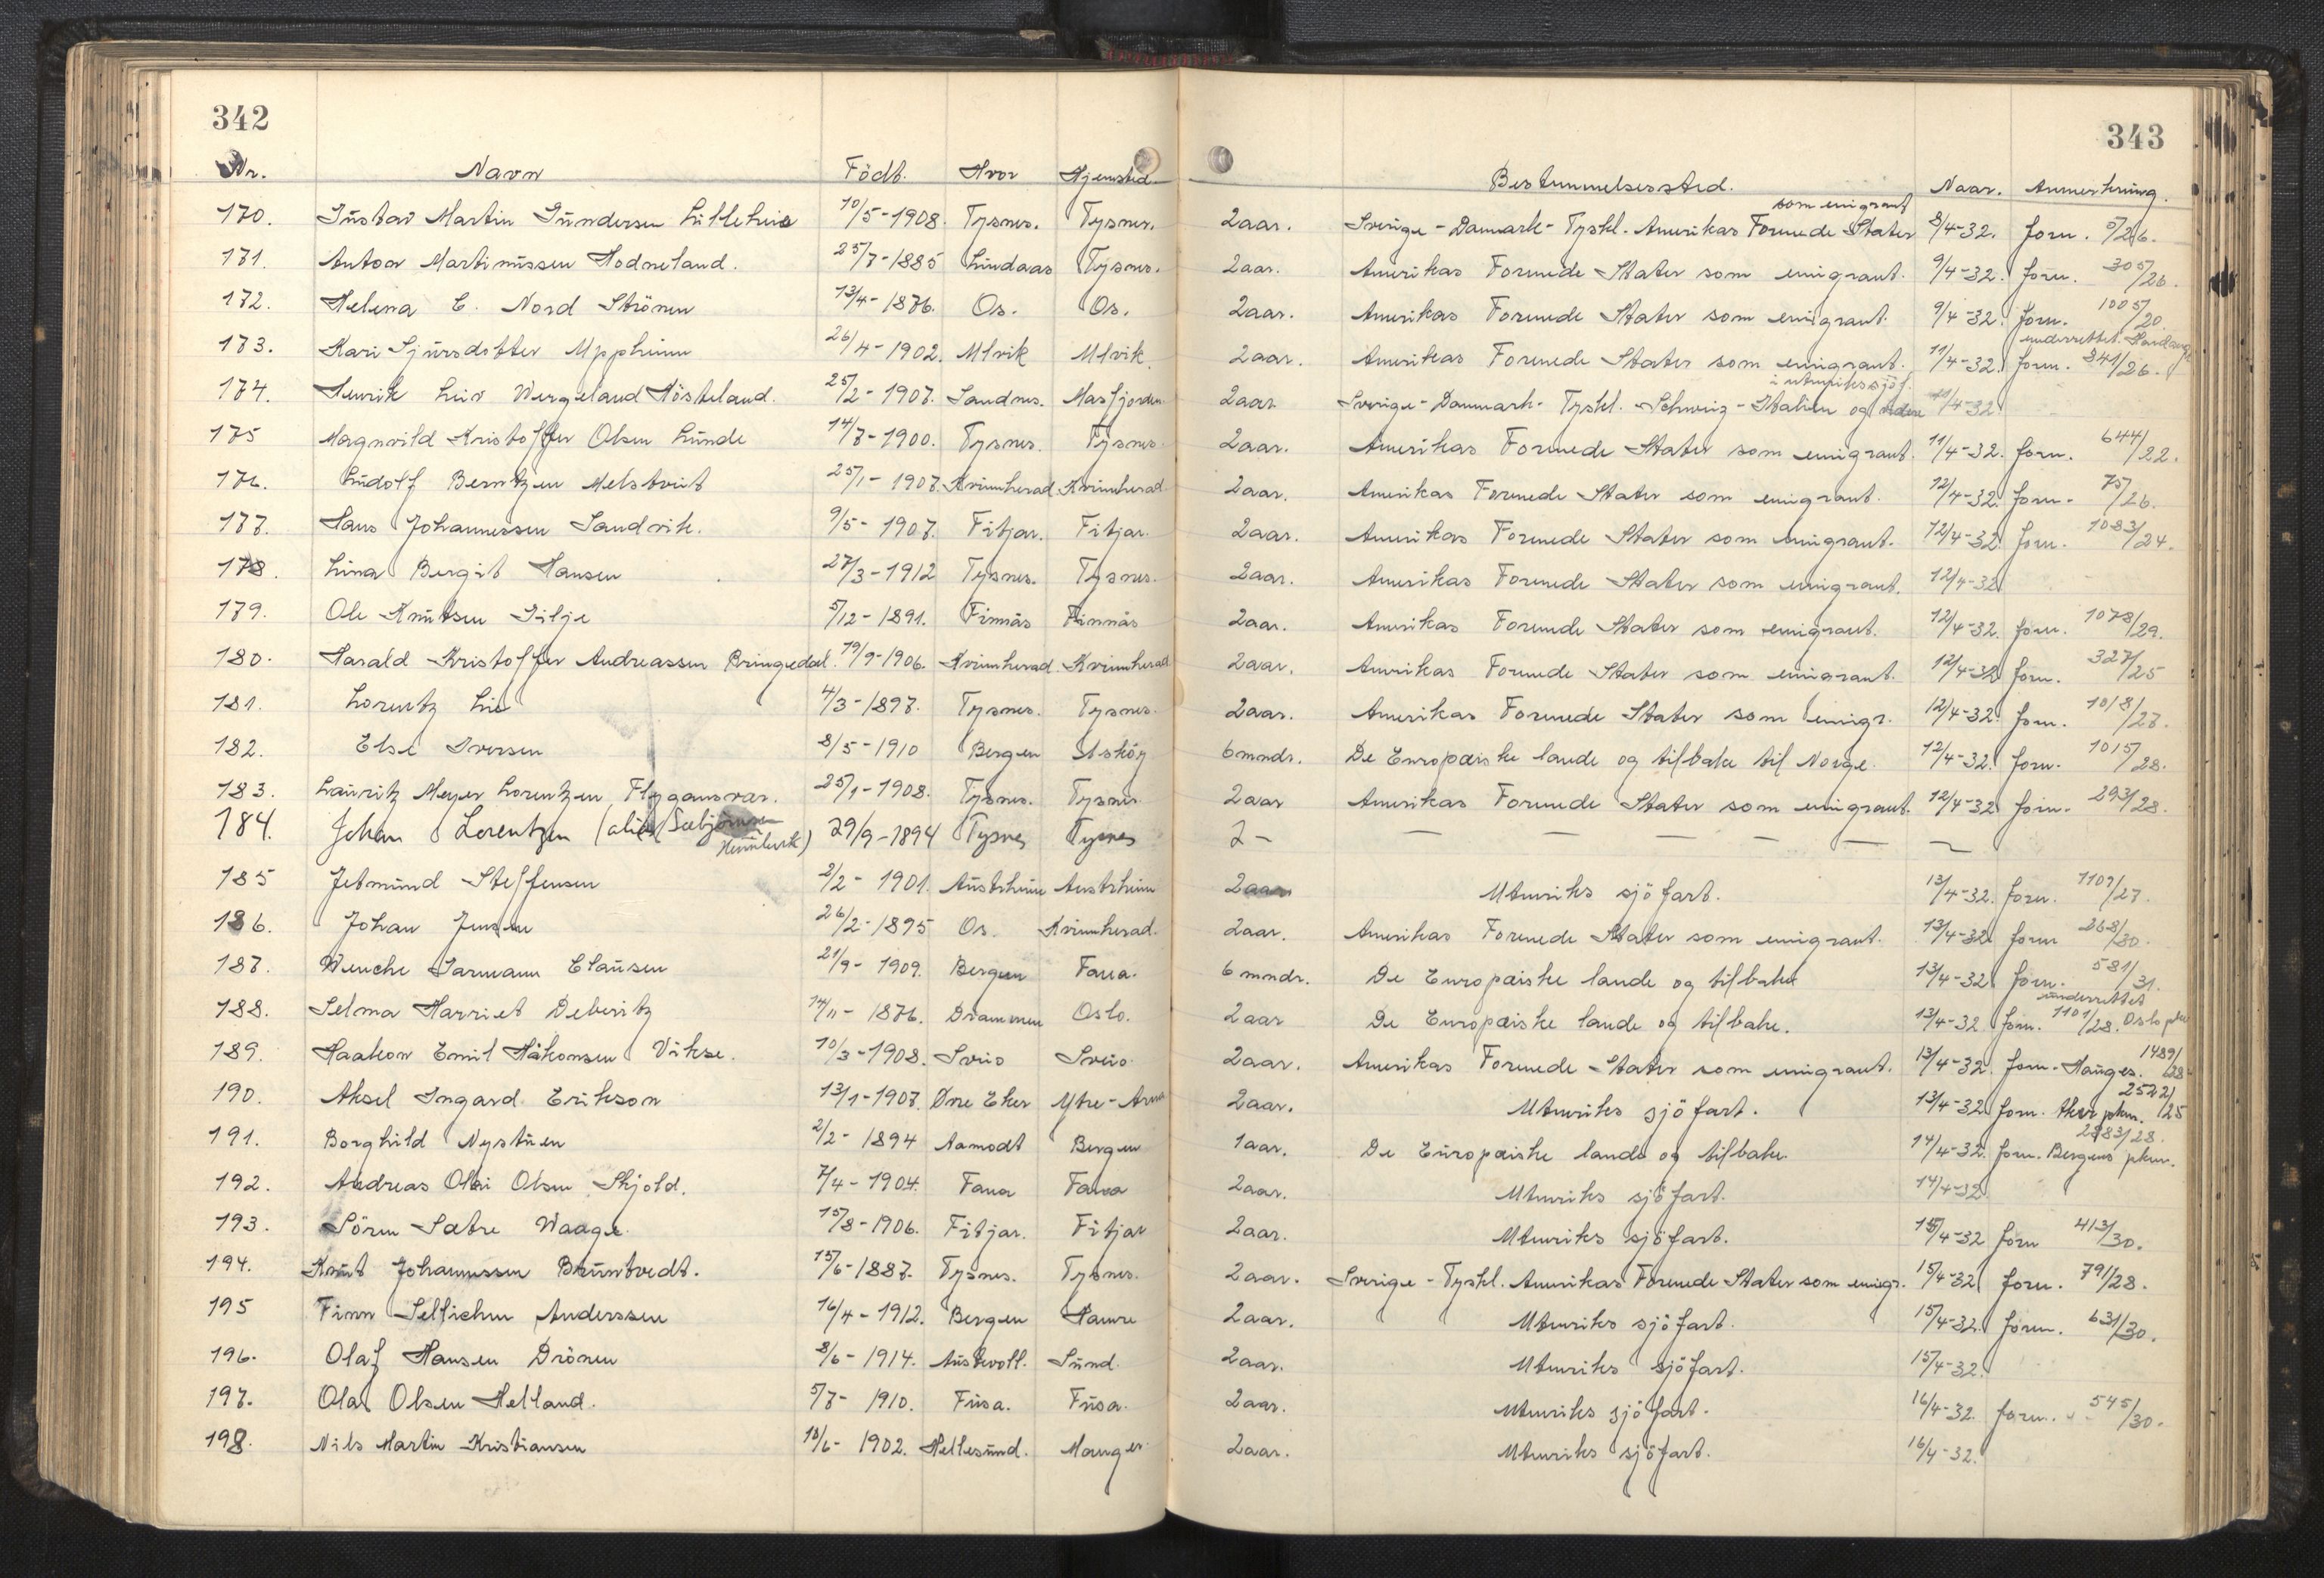 342
343
Nr. Navn Födt. Hvor Hjemsted. Bestemmelsessted. Naar. Anmerkning.
som emigrant
170. Gustav Martin Gundersen Lilleheie 10/5-1908. Tysnes. Tysnes. 2 aar. Sverige - Danmark - Tyskl. Amerikas Forenede Stater 8/4-32. Forn. 5/26.
171. Anton Martinussen Hodneland. 25/7-1885 Lindaas Tysnes. 2 aar. Amerikas Forenede Stater som emigrant. 9/4-32. Forn. 305/26.
172. Helena E. Nord Strönen 13/4-1876. Os. Os. 2 aar. Amerikas Forenede Stater som emigrant. 9/4-32. Forn. 1005/20.
underrettet
173. Kari Sjursdotter Uppheim 26/4-1902. Ulvik Ulvik. 2 aar. Amerikas Forenede Stater som emigrant. 11/4-32. Forn. 341/26.
i utenrikssjöf.
174. Henrik Leiv Wergeland Hösteland. 25/2-1907. Sandnes. Masfjorden 2 aar Sverige - Danmark - Tyskl. - Schweiz - Italien og videre 11/4-32
175 Magnvild Kristoffer Olsen Lunde 14/7-1900. Tysnes. Tysnes. 2 aar. Amerikas Forenede Stater som emigrant. 11/4-32. Forn. 644/22.
176. Ludolf Berntzen Melstveit 25/1-1907. Kvinnherad. Kvinnherad. 2 aar. Amerikas Forenede Stater som emigrant. 12/4-32. Forn. 75/26.
177. Hans Johannessen Sandvik. 9/5-1907. Fitjar. Fitjar. 2 aar. Amerikas Forenede Stater som emigrant. 12/4-32. Forn. 1083/24.
178. Lina Bergit Hansen 27/3-1912 Tysnes. Tysnes. 2 aar. Amerikas Forenede Stater som emigrant. 12/4-32
179. Ole Knutsen Gilje 5/12-1891. Finnås Finnås 2 aar. Amerikas Forenede Stater som emigrant. 12/4-32. Forn. 1078/29.
180. Harald Kristoffer Andreassen Bringedal. 19/9-1906. Kvinnherad. Kvinnherad. 2 aar. Amerikas Forenede Stater som emigrant. 12/4-32 Forn. 327/25
181. Lorentz Lie 4/3-1897. Tysnes. Tysnes. 2 aar. Amerikas Forenede Stater som emigr. 12/4-32. Forn. 1018/27.
182. Else Iversen 8/5-1910 Bergen Asköy 6 mndr. De Europæiske lande og tilbake til Norge. 12/4-32. Forn. 1015/28.
183. Lauritz Meyer Lorentzen Flygansvær. 25/1-1908. Tysnes. Tysnes. 2 aar Amerikas Forenede Stater som emigrant. 12/4-32 Forn. 293/28.
184. Johan Lorentzen (alias Sæbjörnsen 29/9-1894 Tysnes Tysnes 2 - — — — — — —
185 Jetmund Steffensen 2/2-1901. Austrheim Austrheim 2 aar Utenriks sjöfart. 13/4-32. Forn. 1109/27.
186. Johan Jensen 26/2-1895 Os. Kvinnherad. 2 aar. Amerikas Forenede Stater som emigrant. 13/4-32 Forn 268/30.
187. Wenche Jarmann Clausen 21/9-1909. Bergen Fana. 6 mndr. De Europæiske lande og tilbake 13/4-32 Forn. 581/31.
underrettet
188. Selma Harriet Deberitz 14/11-1876. Drammen Oslo. 2 aar De Europæiske lande og tilbake. 13/4-32 Forn. 1101/28. Oslo pkm
189. Haakon Emil Håkonsen Vikse. 10/3-1908. Sveio Sveio. 2 aar. Amerikas Forenede Stater som emigrant. 13/4-32. Forn. Hauges. 1489/28
190. Aksel Ingard Erikson 13/1-1907. Övre Eker Ytre-Arna 2 aar. Utenriks sjöfart. 13/4-32 Forn. Aker pkm. 2522/25
191. Borghild Nystuen 2/2-1894 Aamodt Bergen 1 aar. De Europæiske lande og tilbake. 14/4-32. Forn. Bergens pkm. 2983/28.
192. Andreas Olai Olsen Skjold. 7/4-1904. Fana Fana 2 aar. Utenriks sjöfart. 14/4-32
193. Sören Sætre Waage. 15/8-1906. Fitjar. Fitjar 2 aar. Utenriks sjöfart. 15/4-32 Forn 413/30.
194. Knut Johannessen Bruntvedt. 15/6-1887. Tysnes. Tysnes. 2 aar. Sverige - Tyskl. Amerikas Forenede Stater som emigr. 15/4-32 Forn. 791/28.
195 Finn Sellichen Anderssen 16/4-1912. Bergen Hamre 2 aar. Utenriks sjöfart. 15/4-32. Forn. 631/30.
196. Olaf Hansen Drönen 8/6-1914. Austevoll. Sund. 2 aar. Utenriks sjöfart. 15/4-32.
197. Ola Olsen Helland. 5/7-1910. Fusa. Fusa. 2 aar. Utenriks sjöfart. 16/4-32. Forn. 545/30.
198. Nils Martin Kristiansen 10/6-1902. Hellesund. Manger 2 aar. Utenriks sjöfart. 16/4-32.